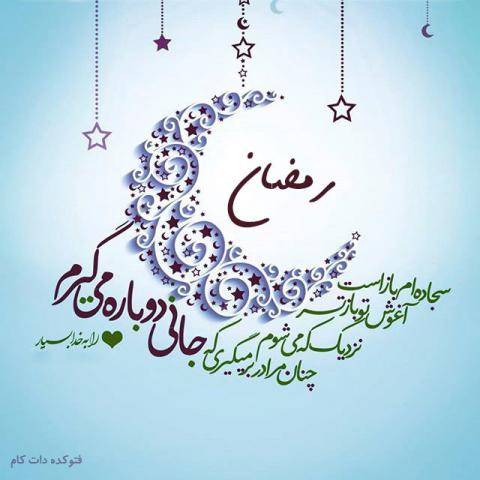 رمضان
سجاده ام باز است
آغوش تو بازتر
نزدیک که می شوم
چنان مرا در بر میگیری که
جانی دوباره می گیرم
را به خدا بسپار
فتوکده دات کام